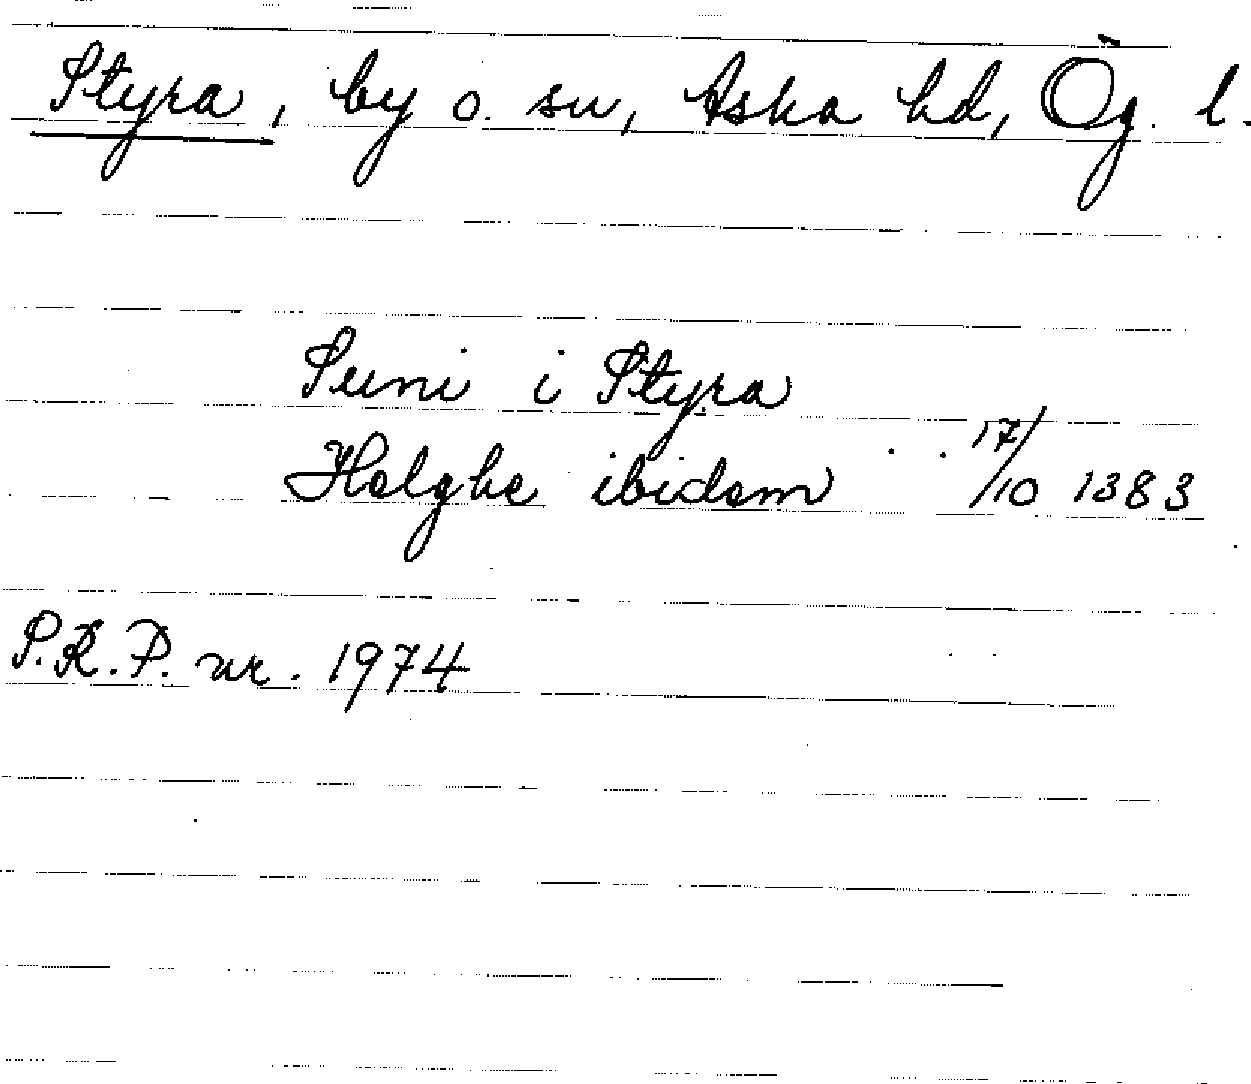 Styra, by o. sn, Aska hd, Ög. l.
Suni i Styra
Helghe ibidem 17/10 1383
S.R.P. nr. 1974